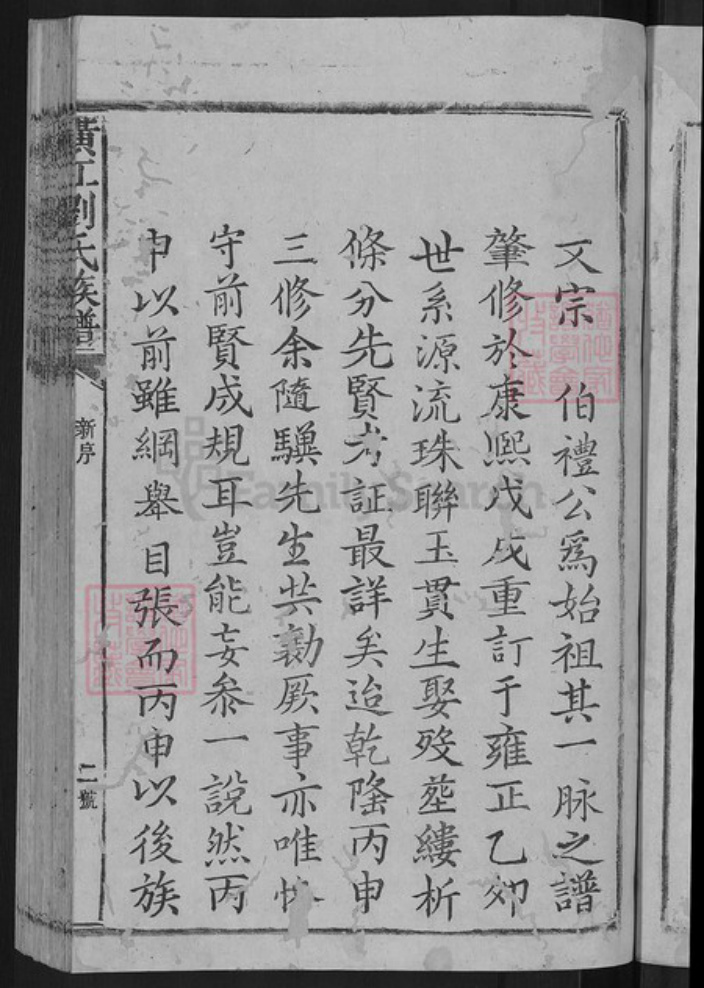 文宗　伯禮公爲始祖其一脉之譜
肇修於康熙戊戌重訂于雍正乙卯
世系源流珠聯玉貫生娶歿塟縷析
條分先賢考証最詳矣迨乾隆丙申
三修余隨驥先生共勷厥事亦唯恪
守前賢成規耳豈能妄參一說然丙
申以前雖綱舉目張而丙申以後族
黃江劉氏族譜
新序
二號
FamilySearch